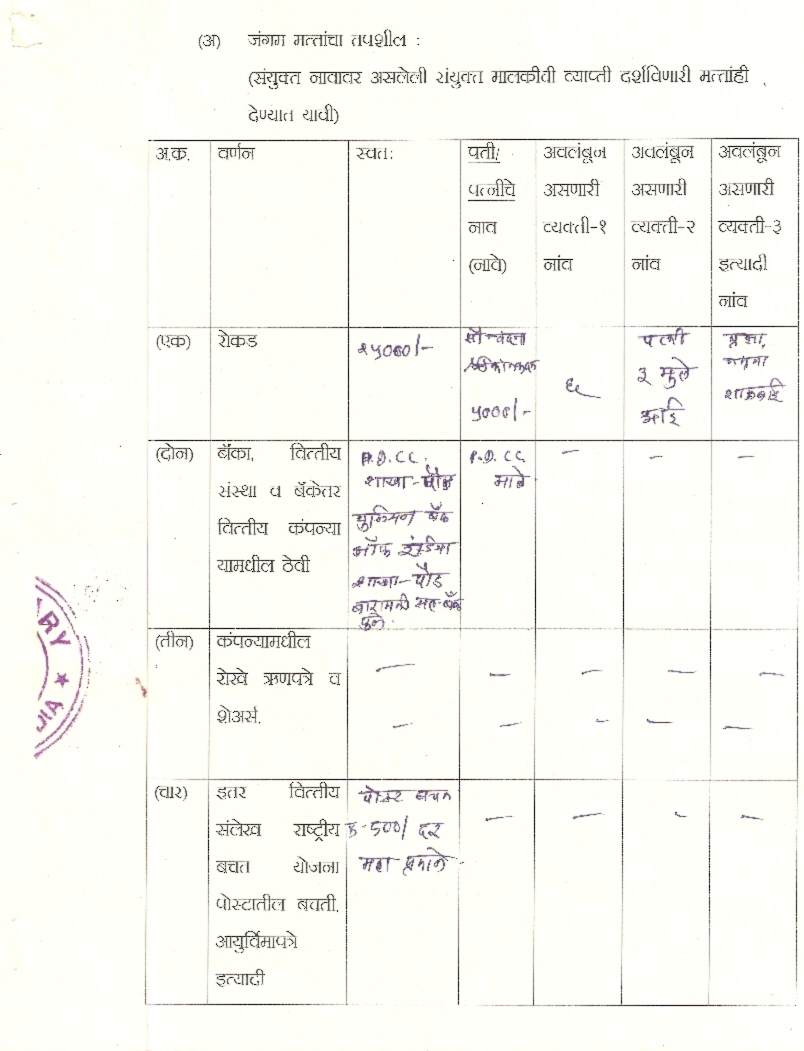 (अ) जंगम मत्तांचा तपशील :
(संयुक्त नावावर असलेली संयुक्त मालकीवी व्याप्ती दर्शविणारी मत्तांही
देण्यात यावी)
अ.क. वर्णन स्वत: पती/ अवलंबून अवलंबून अवलंबून
पत्नीचे असणारी असणारी असणारी
नाव व्यक्ती-१ व्यक्ती-२ व्यक्ती-३
(नावे) नांव नांव इत्यादी
नांव
(एक) रोकड २५०००/- सौ पत्नी
३ मुले
५०००/- ६ आई
(दोन) बॅंका, वित्तीय P.D.CC. P.D.CC. — — —
संस्था व बॅंकेतर शाखा-पौड
वित्तीय कंपन्या युनियन बँक
यामधील ठेवी ऑफ इंडिया
शाखा-पौड
बारामती सह-बँक
पुणे.
(तीन) कंपन्यामधील
रोखे ऋणपत्रे व — — — — —
शेअर्स. — — — — —
(चार) इतर वित्तीय पोस्ट बचत
संलेख राष्ट्रीय रु-500/ दर — — - —
बचत योजना महा प्रमाणे
पोस्टातील बचती,
आयुर्विमापत्रे
इत्यादी
RY
DIA